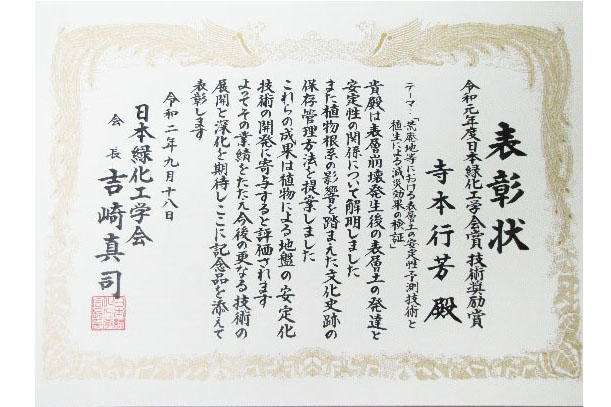 表彰状
令和元年度日本緑化工学会賞 技術奨励賞
寺本行芳 殿
テーマ:「荒廃地等における表層土の安定性予測技術と
植生による減災効果の検証」
貴殿は表層崩壊発生後の表層土の発達と
安定性の関係について解明しました
また植物根系の影響を踏まえた文化史跡の
保存管理方法を提案しました
これらの成果は植物による地盤の安定化
技術の開発に寄与すると評価されます
よってその業績をたたえ今後の更なる技術の
展開と深化を期待しここに記念品を添えて
表彰します
令和二年九月十八日
日本緑化工学会
会長 吉崎真司